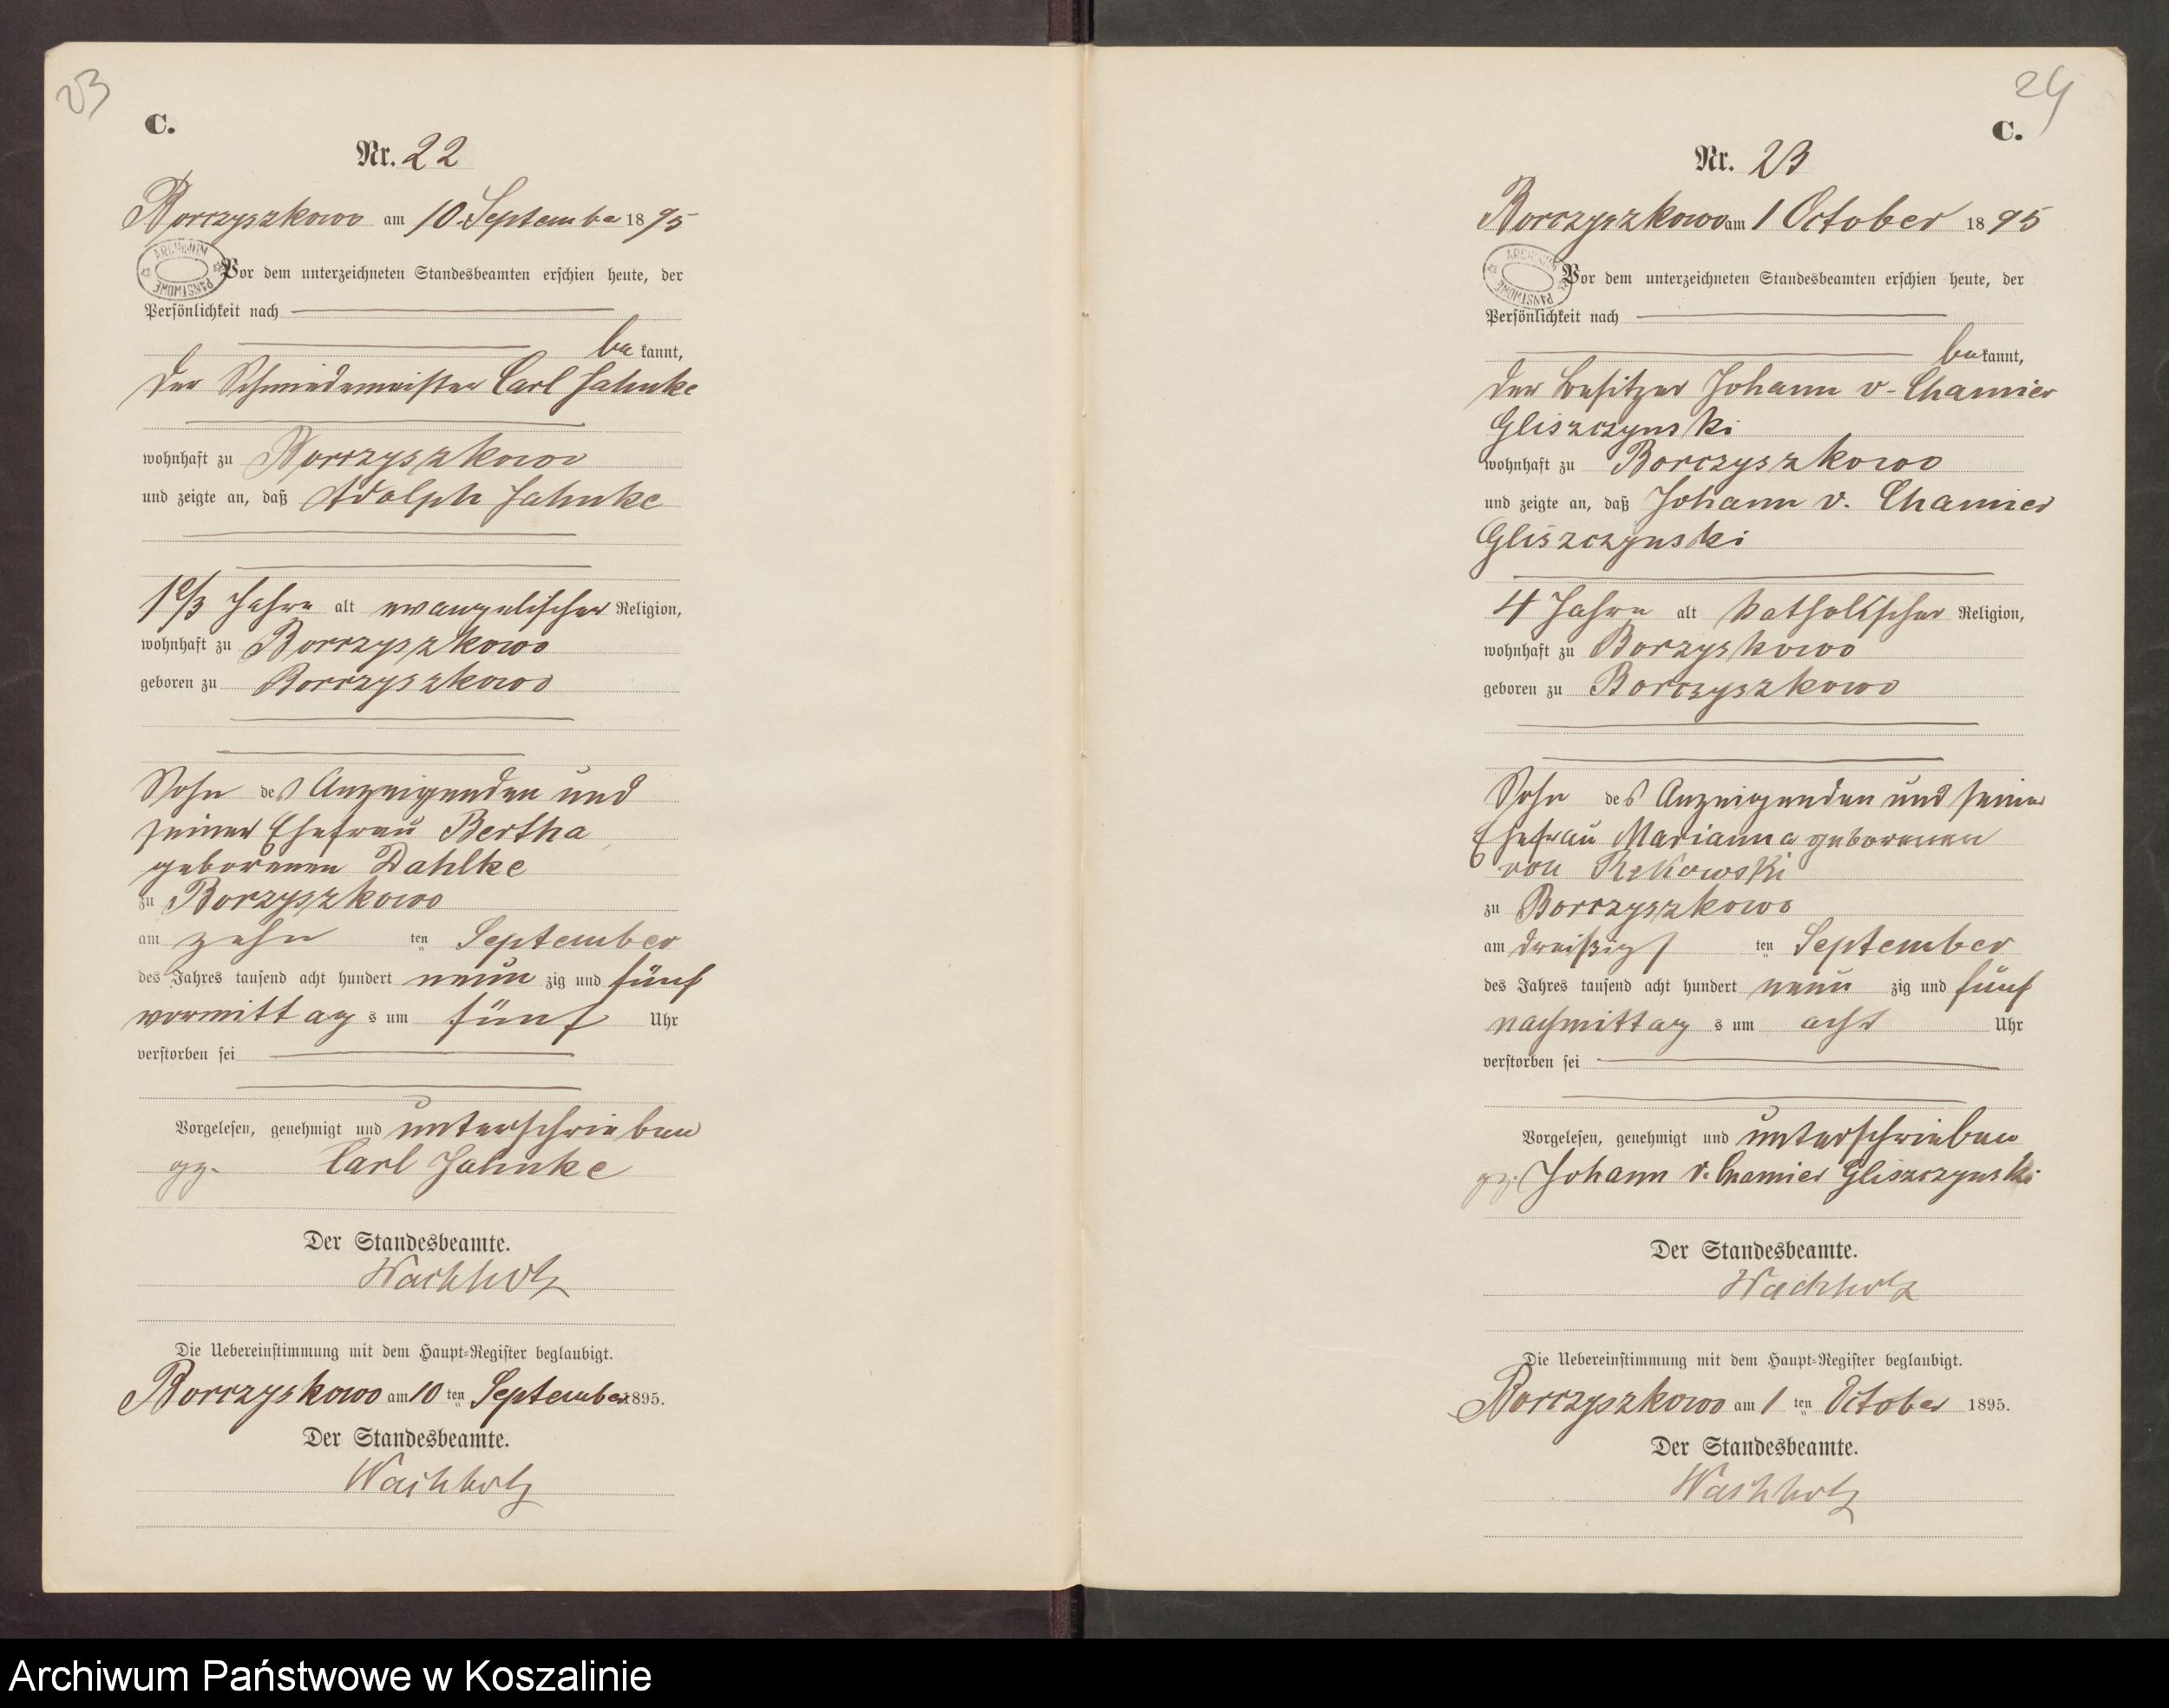 23
C.
Nr. 22
Borczyszkowo am 10 September 1895
ARCHIWUM PAŃSTWOWE
Vor dem unterzeichneten Standesbeamten erschien heute, der
Persönlichkeit nach
be kannt,
der Schmiedemeister Carl Jahnke
wohnhaft zu Borczyszkowo
und zeigte an, daß Adolph Jahnke
Jahre alt evangelischer Religion,
wohnhaft zu Borczyszkowo
geboren zu Borczyszkowo
Sohn des Anzeigenden und
seiner Ehefrau Bertha
geborenen Dahlke
zu Borzyszkowo
am zehn ten September
des Jahres tausend acht hundert neun zig und fünf
vormittag s um fünf Uhr
verstorben sei
Vorgelesen, genehmigt und unterschrieben
gz. Carl Jahnke
Der Standesbeamte.
Wachholz
Die Uebereinstimmung mit dem Haupt-Register beglaubigt.
Borczyskowo am 10 ten September 1895.
Der Standesbeamte.
Wachholz
24
C.
Nr. 23
Borczyszkowo am 1 October 1895
ARCHIWUM PAŃSTWOWE
Vor dem unterzeichneten Standesbeamten erschien heute, der
Persönlichkeit nach
be kannt,
der Besitzer Johann v. Chamier
Gliszczynski
wohnhaft zu Borczyszkowo
und zeigte an, daß Johann v. Chamier
Gliszczynski
4 Jahre alt katholischer Religion,
wohnhaft zu Borzyskowo
geboren zu Borczyszkowo
Sohn des Anzeigenden und seiner
Ehefrau Marianna geborenen
von Rekowski
zu Borczyszkowo
am dreißigs ten September
des Jahres tausend acht hundert neun zig und fünf
nachmittag s um acht Uhr
verstorben sei
Vorgelesen, genehmigt und unterschrieben
gz. Johann v. Chamier Gliszczynski
Der Standesbeamte.
Wachholz
Die Uebereinstimmung mit dem Haupt-Register beglaubigt.
Borczyszkowo am 1 ten October 1895.
Der Standesbeamte.
Wachholz
Archiwum Państwowe w Koszalinie